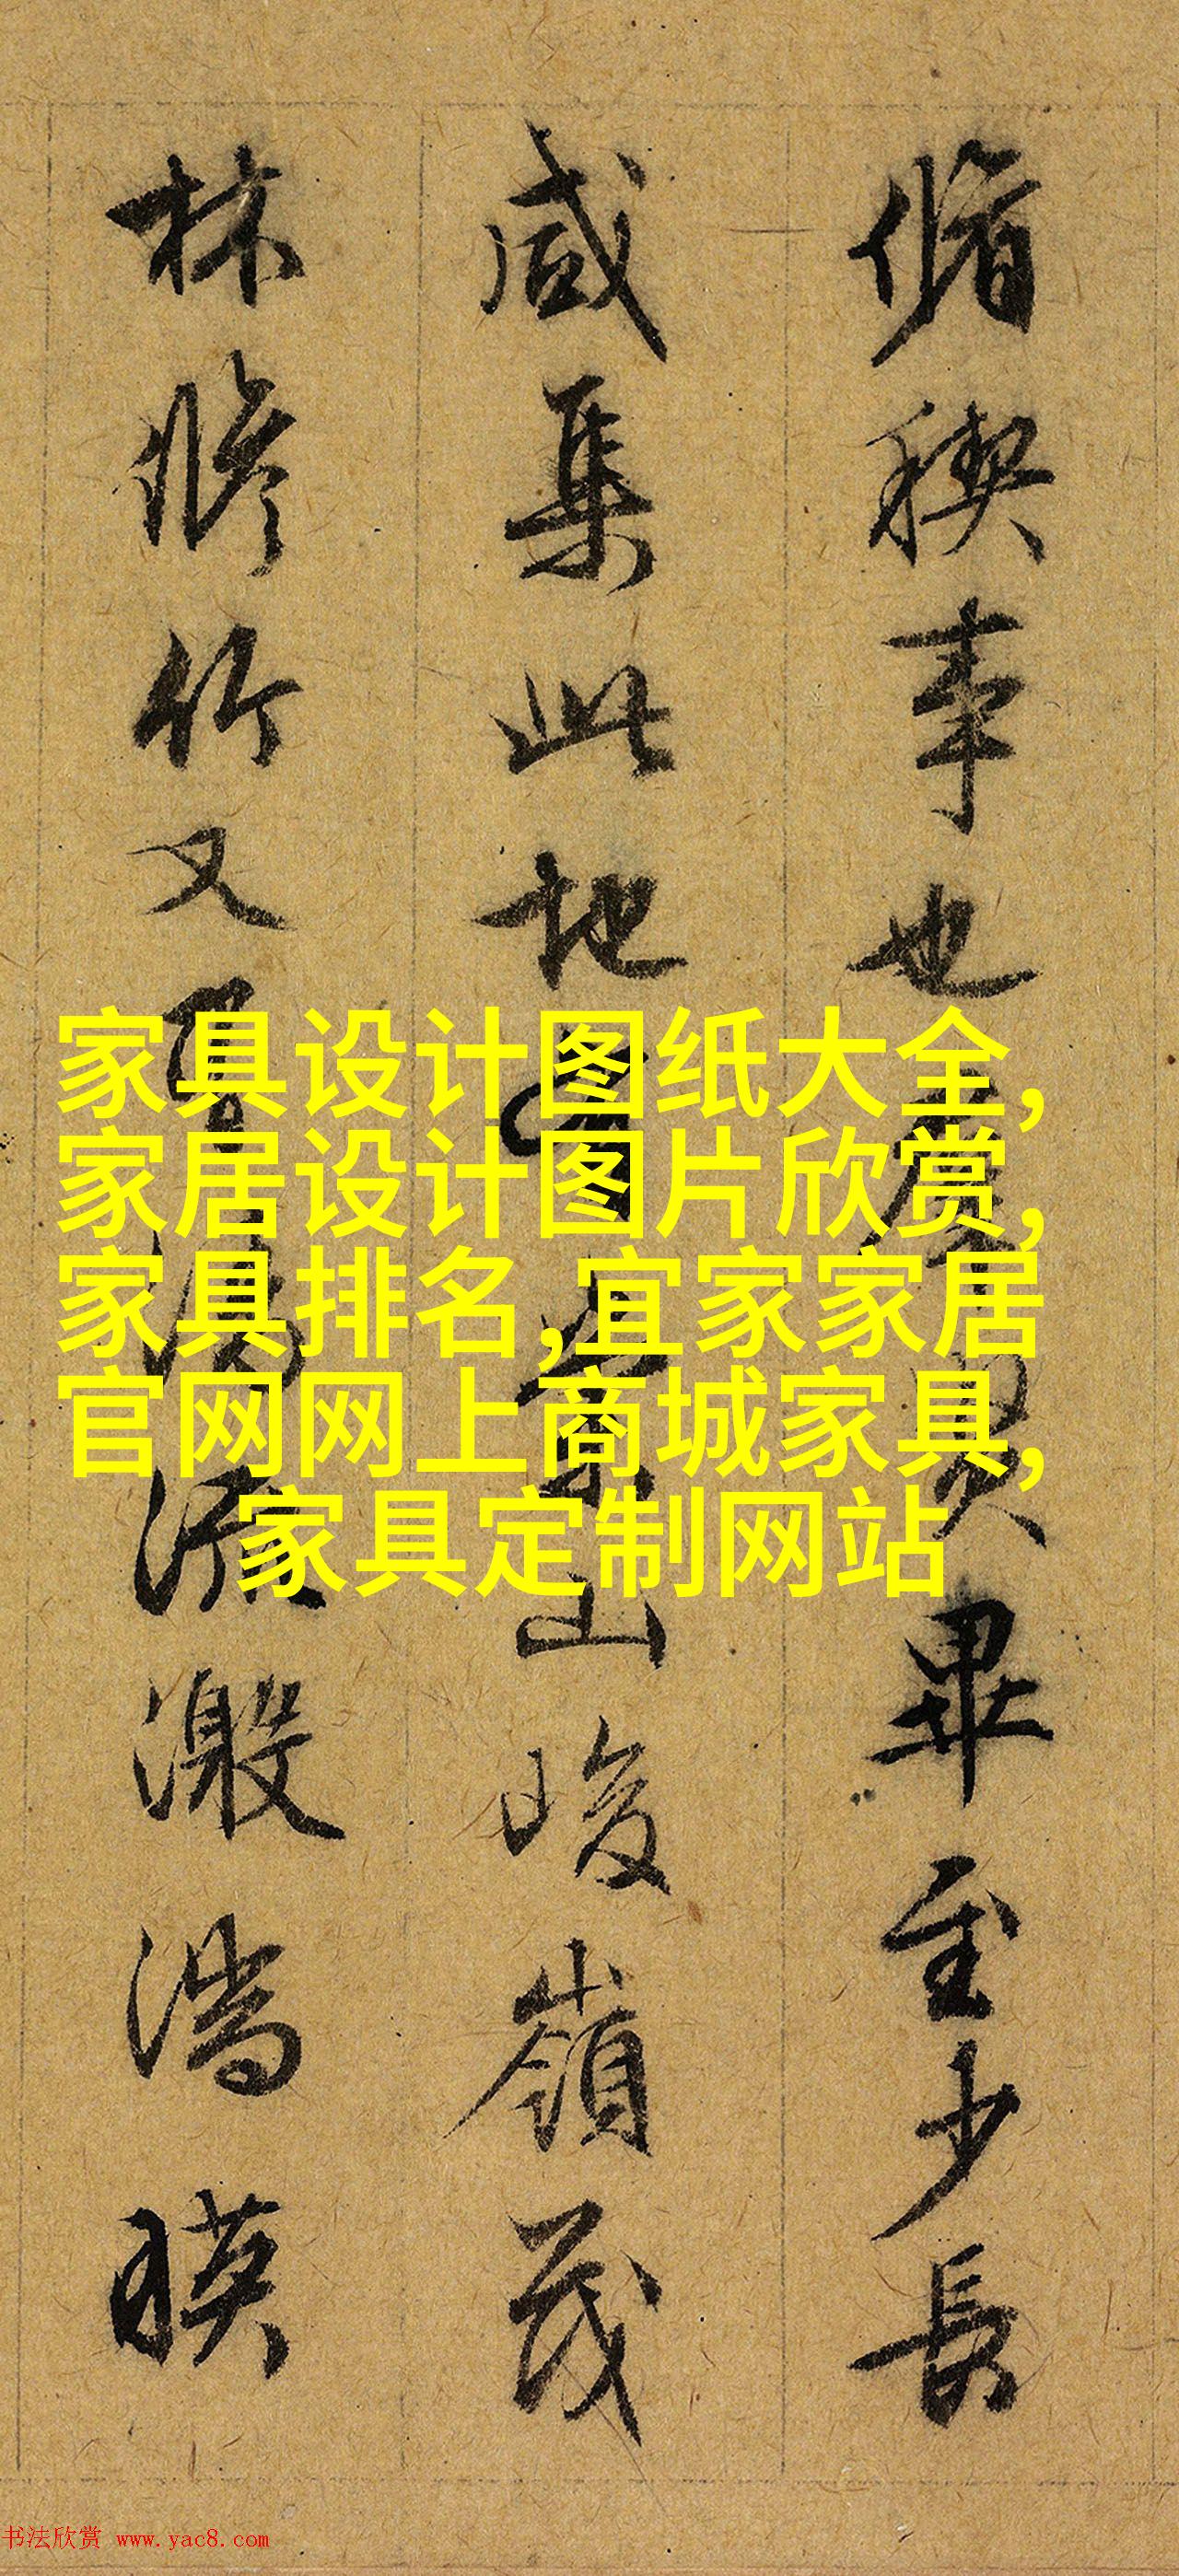 脩稧事也羣賢畢至少長
咸集此地有崇山峻嶺茂
林脩竹又有清流激湍暎
家具设计图纸大全,
家居设计图片欣赏,
家具排名,宜家家居
官网网上商城家具,
家具定制网站
书法欣赏 www.yac8.com